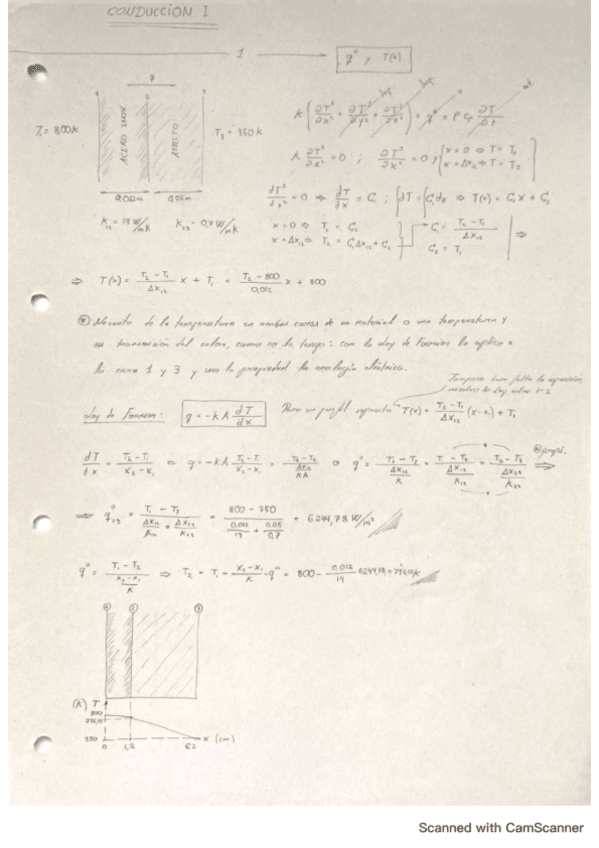 CONDUCCION I
1 q" y T(x)
T₁ = 800K
ACERO INOX
ASFALTO
T₃ = 350K
K (∂T²/∂x² + ∂T²/∂y² + ∂T²/∂z²) + q° = ρ Cp ∂T/∂t
K ∂T²/∂x² = 0 ; ∂T²/∂x² = 0 y { x = 0 ⇒ T = T₁
x = Δx₁₂ ⇒ T = T₂
0,012m 0,05m
dT²/dx² = 0 ⇒ dT/dx = C₁ ; ∫dT = ∫C₁dx ⇒ T(x) = C₁x + C₂
K₁₂ = 19 W/mK K₂₃ = 0,7 W/mK
x = 0 ⇒ T₁ = C₂
x = Δx₁₂ ⇒ T₂ = C₁Δx₁₂ + C₂
C₁ = (T₂ - T₁)/Δx₁₂
C₂ = T₁ ⇒
⇒ T(x) = (T₂ - T₁)/Δx₁₂ x + T₁ = (T₂ - 800)/0,012 x + 800
Necesito de la temperatura en ambas caras de un material o una temperatura y
su transmisión del calor, como no la tengo: con la Ley de Fourier la aplico a
la cara 1 y 3 y uso la propiedad la analogía eléctrica.
Ley de Fourier: q = -kA dT/dx Para un perfil supuesto T(x) = (T₂ - T₁)/Δx₁₂ (x - x₁) + T₁
dT/dx = (T₂ - T₁)/(x₂ - x₁) ⇒ q = -kA (T₂ - T₁)/(x₂ - x₁) = (T₁ - T₂)/(Δx₁₂/kA) o q" = (T₁ - T₂)/(Δx₁₂/k) = (T₁ - T₂)/(Δx₁₂/k₁₂) = (T₂ - T₃)/(Δx₂₃/k₂₃) ⇒
⇒ q"₁₃ = (T₁ - T₃)/(Δx₁₂/k₁₂ + Δx₂₃/k₂₃) = (800 - 350)/(0,012/19 + 0,05/0,7) = 6244,78 W/m²
q" = (T₁ - T₂)/((x₂ - x₁)/k) ⇒ T₂ = T₁ - (x₂ - x₁)/k · q" = 800 - 0,012/19
1 2 3
(K) T
800
350
0 1,2 6,2 x (cm)
Scanned with CamScanner